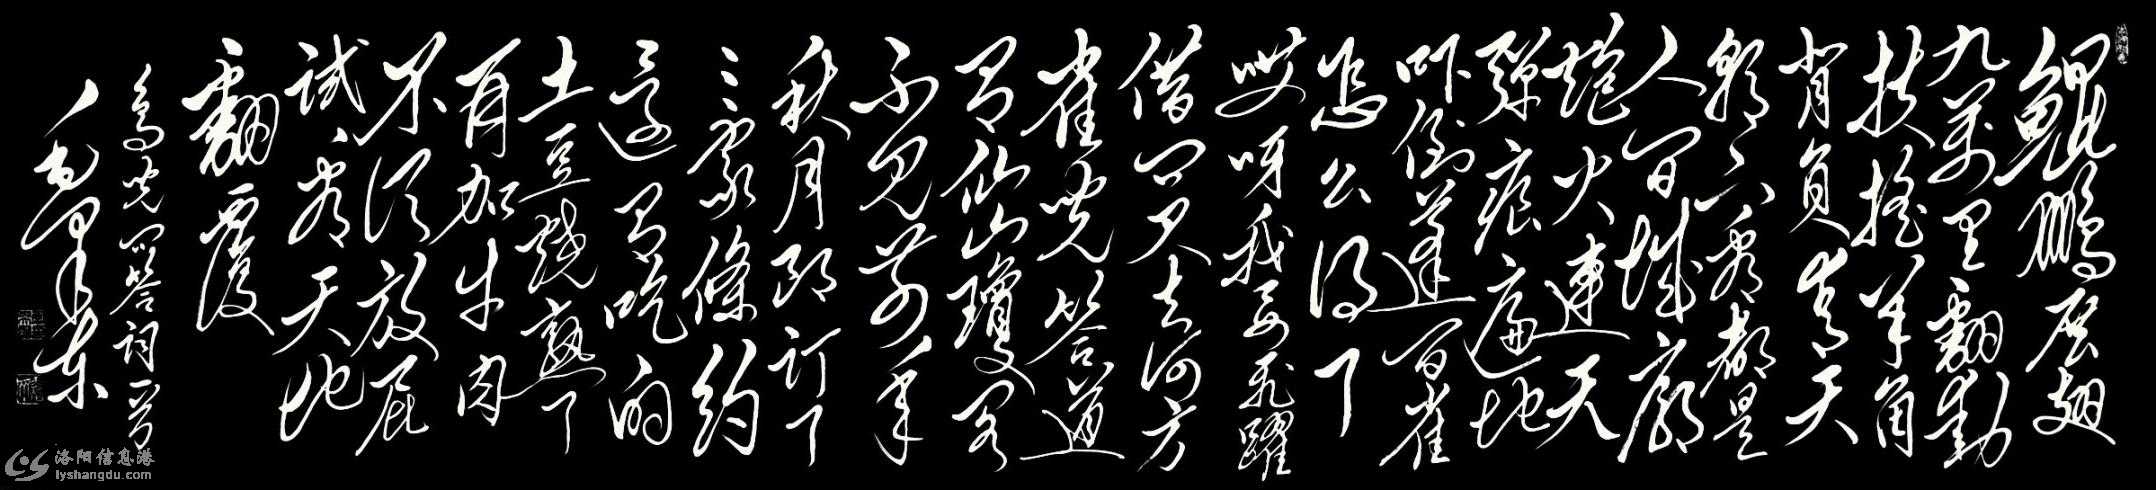 鲲鹏展翅
九萬里翻動
扶搖羊角
背負青天
朝下看都是
人间城廓
炮火連天
彈痕遍地
吓倒蓬间雀
怎么得了
哎呀我要飛躍
借问君去何方
雀兒答道
有仙山瓊阁
不见前年
秋月朗订了
三家條約
還有吃的
土豆燒熟了
再加牛肉
不须放屁
試看天地
翻覆
鸟兒问答词一首
毛泽东
洛阳信息港
lyshangdu.com